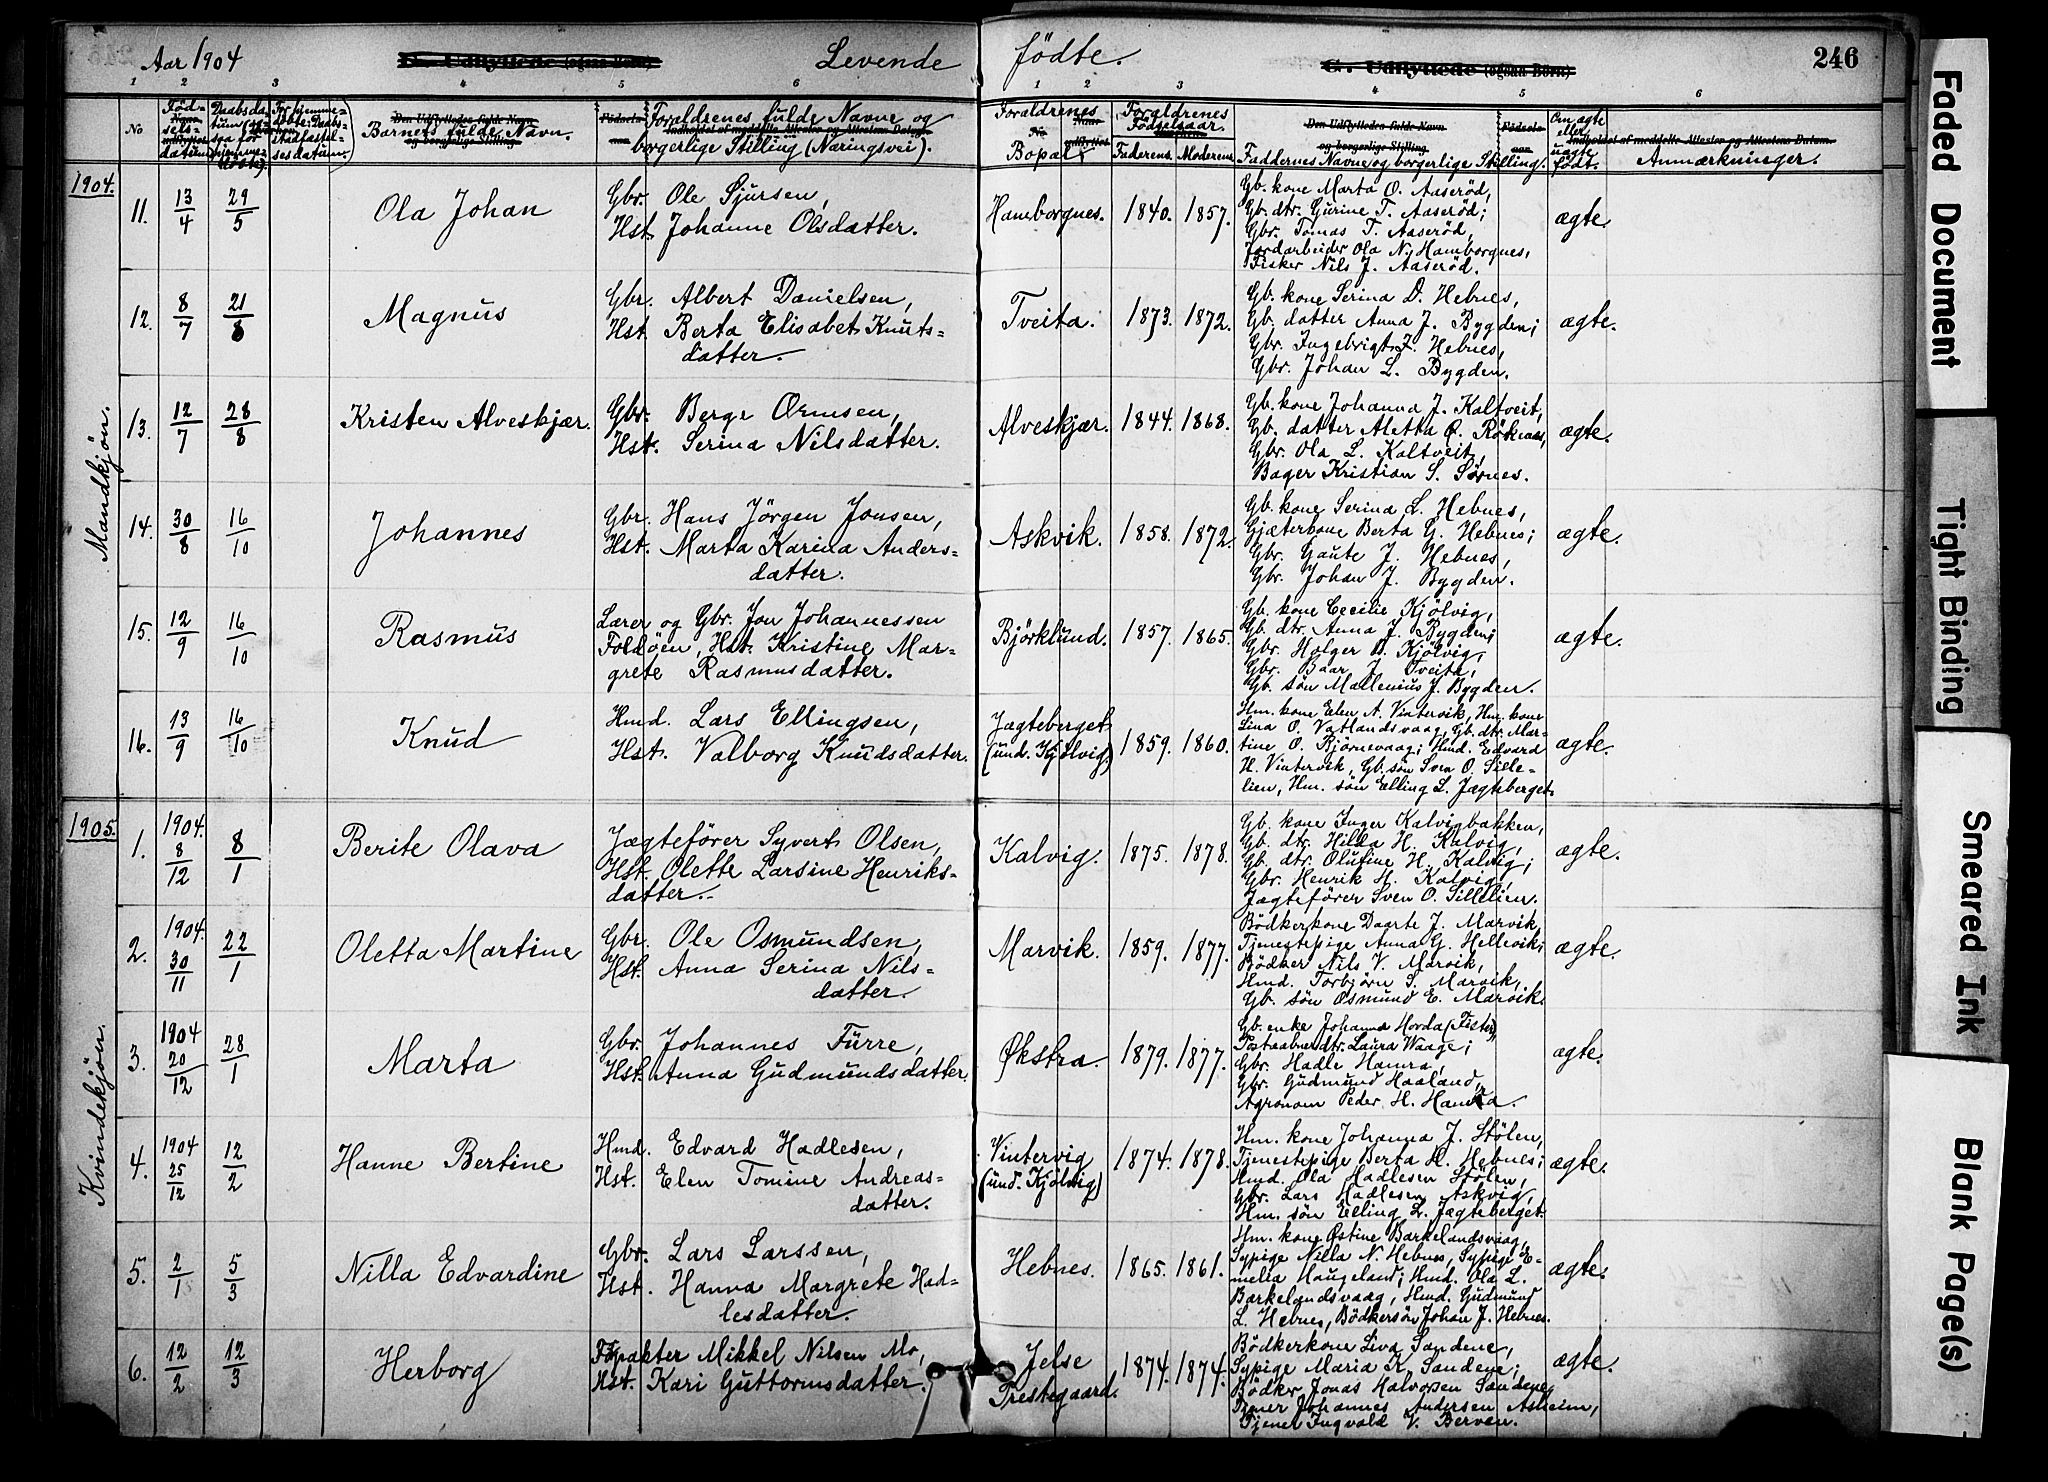 Aar 1904
Levende fødte.
246
No
Barnets fulde Navn.
Forældrenes fulde Navne og
borgerlige Stilling (Næringsvei).
Forældrenes
Bopæl
Forældrenes
Fødselsaar.
Faderens Moderens
Faddernes Navne og borgerlige Stilling.
Om ægte
eller
uægte
født.
Anmærkninger.
1904.
Mandkjøn.
11. 13/4 29/5 Ola Johan
Gbr. Ole Sjursen,
Hst. Johanne Olsdatter.
Hamborgnes. 1840. 1857.
Gb. kone Marta O. Aaserød,
Gb. dtr. Gurine T. Aaserød;
Gbr. Tomas T. Aaserød,
Jordarbeider Ola N. Hamborgnes,
Fisker Nils J. Aaserød.
ægte.
12. 8/7 21/8 Magnus
Gbr. Albert Danielsen,
Hst. Berta Elisabet Knuts-
datter.
Tveita. 1873. 1872.
Gb. kone Serina D. Hebnes,
Gb. datter Anna J. Bygden;
Gbr. Ingebrigt J. Hebnes,
Gbr. Johan L. Bygden.
ægte.
13. 12/7 28/8 Kristen Alveskjær.
Gbr. Berge Ormsen,
Hst. Serina Nilsdatter.
Alveskjær. 1844. 1868.
Gb. kone Johanna J. Kaltveit,
Gb. datter Aletta O. Røknæs,
Gbr. Ola L. Kaltveit,
Bager Kristian S. Sørnes.
ægte.
14. 30/8 16/10 Johannes
Gbr. Hans Jørgen Jonsen,
Hst. Marta Karina Anders-
datter.
Askvik. 1858. 1872.
Gb. kone Serina L. Hebnes,
Gjæterkone Berta G. Hebnes;
Gbr. Gaute J. Hebnes,
Gbr. Johan J. Bygden.
ægte.
15. 12/9 16/10 Rasmus
Lærer og Gbr. Jon Johannessen
Foldøen, Hst. Kristine Mar-
grete Rasmusdatter.
Bjørklund. 1857. 1865.
Gb. kone Cecilie Kjølvig,
Gb. dtr. Anna J. Bygden;
Gbr. Holger D. Kjølvig,
Gbr. Baar J. Tveita,
Gb. søn Mallenius J. Bygden.
ægte.
16. 13/9 16/10 Knud
Hmd. Lars Ellingsen,
Hst. Valborg Knudsdatter.
Jægteberget
(und. Kjølvig) 1859. 1860.
Hm. kone Elen A. Vintervik, Hm. kone
Lina O. Vatlandsvaag, Gb. dtr. Mar-
tine O. Bjørnevaag; Hmd. Edvard
H. Vintervik, Gb. søn Sven O. Sille-
lien, Hm. søn Elling L. Jægteberget.
ægte.
1905.
Kvindekjøn.
1. 1904. 8/12 8/1 Berite Olava
Jægtefører Syvert Olsen,
Hst. Olette Larsine Henriks-
datter.
Kalvig. 1875. 1878.
Gb. kone Inger Kalvigbakken,
Gb. dtr. Hilda H. Kalvig,
Gb. dtr. Olufine H. Kalvig;
Gbr. Henrik H. Kalvig,
Jægtefører Sven O. Sillelien.
ægte.
2. 1904. 30/11 22/1 Oletta Martine
Gbr. Ole Osmundsen,
Hst. Anna Serina Nils-
datter.
Marvik. 1859. 1877.
Bødkerkone Daarte J. Marvik,
Tjenestepige Anna G. Hellevik;
Bødker Nils V. Marvik,
Hmd. Torbjørn S. Marvik,
Gb. søn Osmund E. Marvik.
ægte.
3. 1904 20/12 28/1 Marta
Gbr. Johannes Fürre,
Hst. Anna Gudmundsdatter.
Økstra. 1879. 1877.
Gb. enke Johanna Horda (Fister),
Postaabnerdtr. Laura Waage;
Gbr. Hadle Hamra,
Gbr. Gudmund Haaland,
Agronom Peder H. Hamra.
ægte.
4. 1904 25/12 12/2 Hanne Bertine
Hmd. Edvard Hadlesen,
Hst. Elen Tomine Andreas-
datter.
Vintervig
(und. Kjølvig) 1874. 1878.
Hm. kone Johanna J. Stølen,
Tjenestepige Berta H. Hebnes;
Hmd. Ola Hadlesen Stølen,
Gbr. Lars Hadlesen Askvig,
Hm. søn Elling L. Jægteberget.
ægte.
5. 2/1 5/3 Nilla Edvardine
Gbr. Lars Larssen,
Hst. Hanna Margrete Had-
lesdatter.
Hebnes. 1865. 1861.
Hm. kone Østine Barkelandsvaag,
Sypige Nilla N. Hebnes, Sypige E-
melia Haugeland; Hmd. Ola L.
Barkelandsvaag, Hmd. Gudmund
L. Hebnes, Bødkersøn Johan J. Hebnes.
ægte.
6. 12/2 12/3 Herborg
Forpakter Mikkel Nilsen Mo,
Hst. Kari Guttormsdatter.
Jelse
Prestegaard. 1874. 1874.
Bødkerkone Liva Sandene,
Sypige Maria K. Sandene;
Bødker Jonas Halvorsen Sandene,
Tjener Johannes Andersen Asheim,
Tjener Ingvald V. Berven.
ægte.
Faded Document
Tight Binding
Smeared Ink
Blank Page(s)